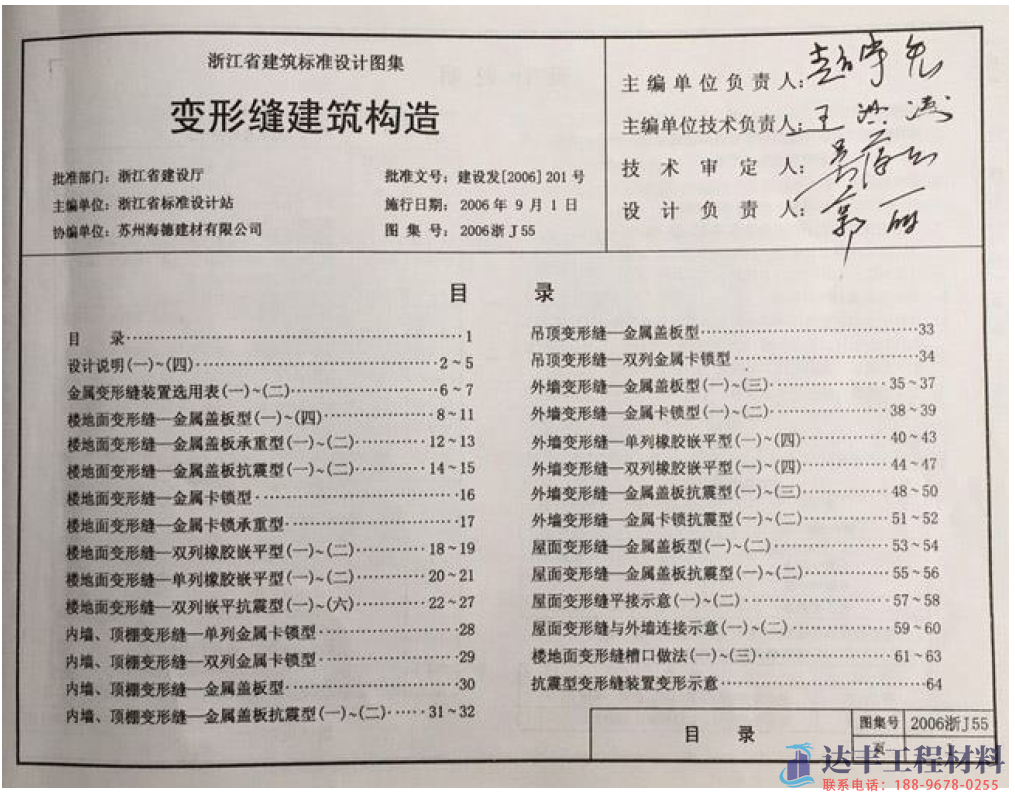 浙江省建筑标准设计图集
变形缝建筑构造
批准部门：浙江省建设厅
主编单位：浙江省标准设计站
协编单位：苏州海德建材有限公司
批准文号：建设发[2006]201号
施行日期：2006年9月1日
图 集 号：2006浙J55
主编单位负责人：
主编单位技术负责人：王
技术审定人：
设计负责人：郭
目 录
目 录……1
设计说明(一)~(四)……2~5
金属变形缝装置选用表(一)~(二)……6~7
楼地面变形缝—金属盖板型(一)~(四)……8~11
楼地面变形缝—金属盖板承重型(一)~(二)……12~13
楼地面变形缝—金属盖板抗震型(一)~(二)……14~15
楼地面变形缝—金属卡锁型……16
楼地面变形缝—金属卡锁承重型……17
楼地面变形缝—双列橡胶嵌平型(一)~(二)……18~19
楼地面变形缝—单列橡胶嵌平型(一)~(二)……20~21
楼地面变形缝—双列嵌平抗震型(一)~(六)……22~27
内墙、顶棚变形缝—单列金属卡锁型……28
内墙、顶棚变形缝—双列金属卡锁型……29
内墙、顶棚变形缝—金属盖板型……30
内墙、顶棚变形缝—金属盖板抗震型(一)~(二)……31~32
吊顶变形缝—金属盖板型……33
吊顶变形缝—双列金属卡锁型……34
外墙变形缝—金属盖板型(一)~(三)……35~37
外墙变形缝—金属卡锁型(一)~(二)……38~39
外墙变形缝—单列橡胶嵌平型(一)~(四)……40~43
外墙变形缝—双列橡胶嵌平型(一)~(四)……44~47
外墙变形缝—金属盖板抗震型(一)~(三)……48~50
外墙变形缝—金属卡锁抗震型(一)~(二)……51~52
屋面变形缝—金属盖板型(一)~(二)……53~54
屋面变形缝—金属盖板抗震型(一)~(二)……55~56
屋面变形缝平接示意(一)~(二)……57~58
屋面变形缝与外墙连接示意(一)~(二)……59~60
楼地面变形缝槽口做法(一)~(三)……61~63
抗震型变形缝装置变形示意……64
目 录
图集号 2006浙J55
页
达丰工程材料
联系电话：188-9678-0255